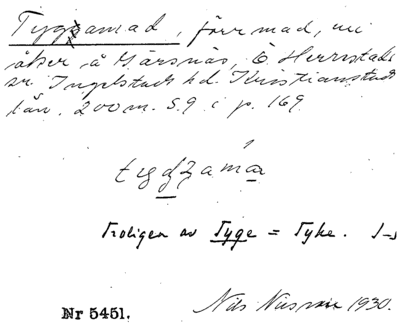 Tygsamad, förr mad, nu
åker å Gärsnäs, Ö Herrestads
sn. Ingelstads hd. Kristianstads
län. 200 m. S.9 i p. 169.
tygzama
Troligen av Tyge = Tyke.
Nr 5451.
Nils 1930.